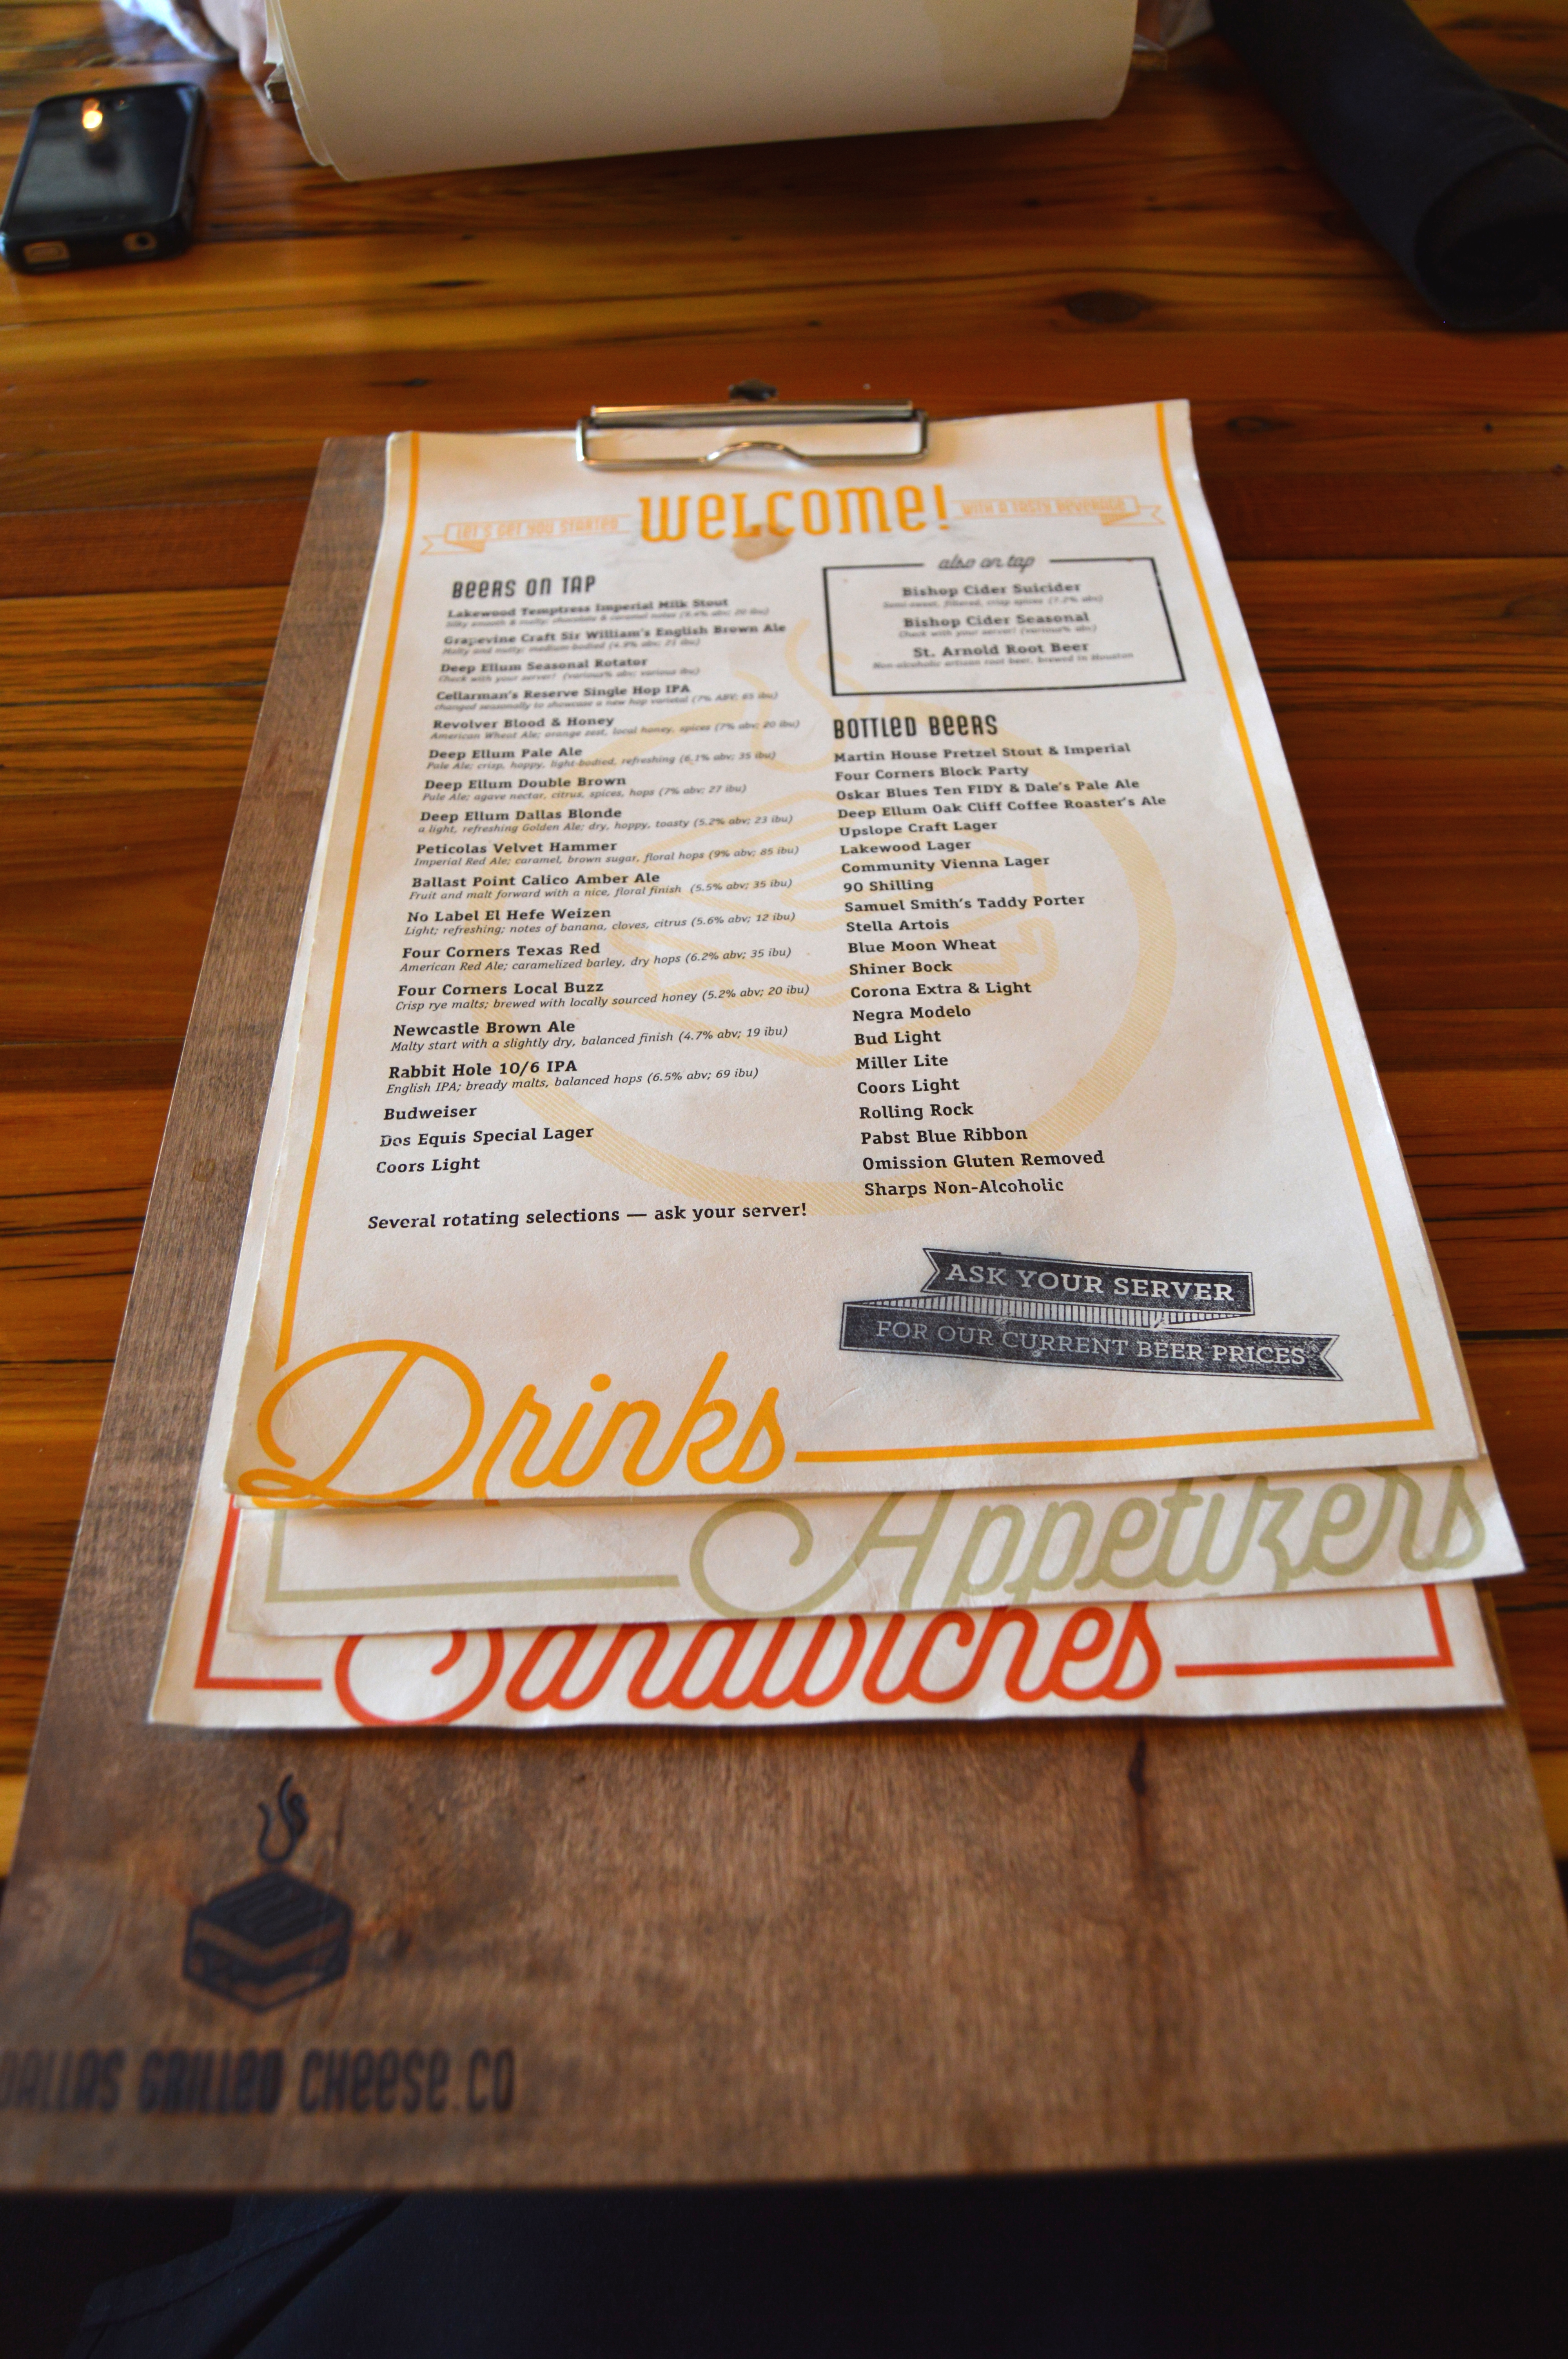 LET'S GET YOU STARTED WELCOME! WITH A TASTY BEVERAGE
BEERS ON TAP
Lakewood Temptress Imperial Milk Stout
Silky smooth & malty; chocolate & caramel notes
Grapevine Craft Sir William's English Brown Ale
Malty and nutty; medium-bodied
Deep Ellum Seasonal Rotator
Check with your server! (various% abv; various ibu)
Cellarman's Reserve Single Hop IPA
changed seasonally to showcase a new hop varietal (7% ABV; 65 ibu)
Revolver Blood & Honey
American Wheat Ale; orange zest, local honey, spices (7% abv; 20 ibu)
Deep Ellum Pale Ale
Pale Ale; crisp, hoppy, light-bodied, refreshing (6.1% abv; 35 ibu)
Deep Ellum Double Brown
Pale Ale; agave nectar, citrus, spices, hops (7% abv; 27 ibu)
Deep Ellum Dallas Blonde
a light, refreshing Golden Ale; dry, hoppy, toasty (5.2% abv; 23 ibu)
Peticolas Velvet Hammer
Imperial Red Ale; caramel, brown sugar, floral hops (9% abv; 85 ibu)
Ballast Point Calico Amber Ale
Fruit and malt forward with a nice, floral finish (5.5% abv; 35 ibu)
No Label El Hefe Weizen
Light; refreshing; notes of banana, cloves, citrus (5.6% abv; 12 ibu)
Four Corners Texas Red
American Red Ale; caramelized barley, dry hops (6.2% abv; 35 ibu)
Four Corners Local Buzz
Crisp rye malts; brewed with locally sourced honey (5.2% abv; 20 ibu)
Newcastle Brown Ale
Malty start with a slightly dry, balanced finish (4.7% abv; 19 ibu)
Rabbit Hole 10/6 IPA
English IPA; bready malts, balanced hops (6.5% abv; 69 ibu)
Budweiser
Dos Equis Special Lager
Coors Light
Several rotating selections — ask your server!
also on tap
Bishop Cider Suicider
Semi-sweet, filtered, crisp spices (7.2% abv)
Bishop Cider Seasonal
Check with your server! (various% abv)
St. Arnold Root Beer
Non-alcoholic artisan root beer, brewed in Houston
BOTTLED BEERS
Martin House Pretzel Stout & Imperial
Four Corners Block Party
Oskar Blues Ten FIDY & Dale's Pale Ale
Deep Ellum Oak Cliff Coffee Roaster's Ale
Upslope Craft Lager
Lakewood Lager
Community Vienna Lager
90 Shilling
Samuel Smith's Taddy Porter
Stella Artois
Blue Moon Wheat
Shiner Bock
Corona Extra & Light
Negra Modelo
Bud Light
Miller Lite
Coors Light
Rolling Rock
Pabst Blue Ribbon
Omission Gluten Removed
Sharps Non-Alcoholic
ASK YOUR SERVER
FOR OUR CURRENT BEER PRICES
Drinks
Appetizers
Sandwiches
DALLAS GRILLED CHEESE CO